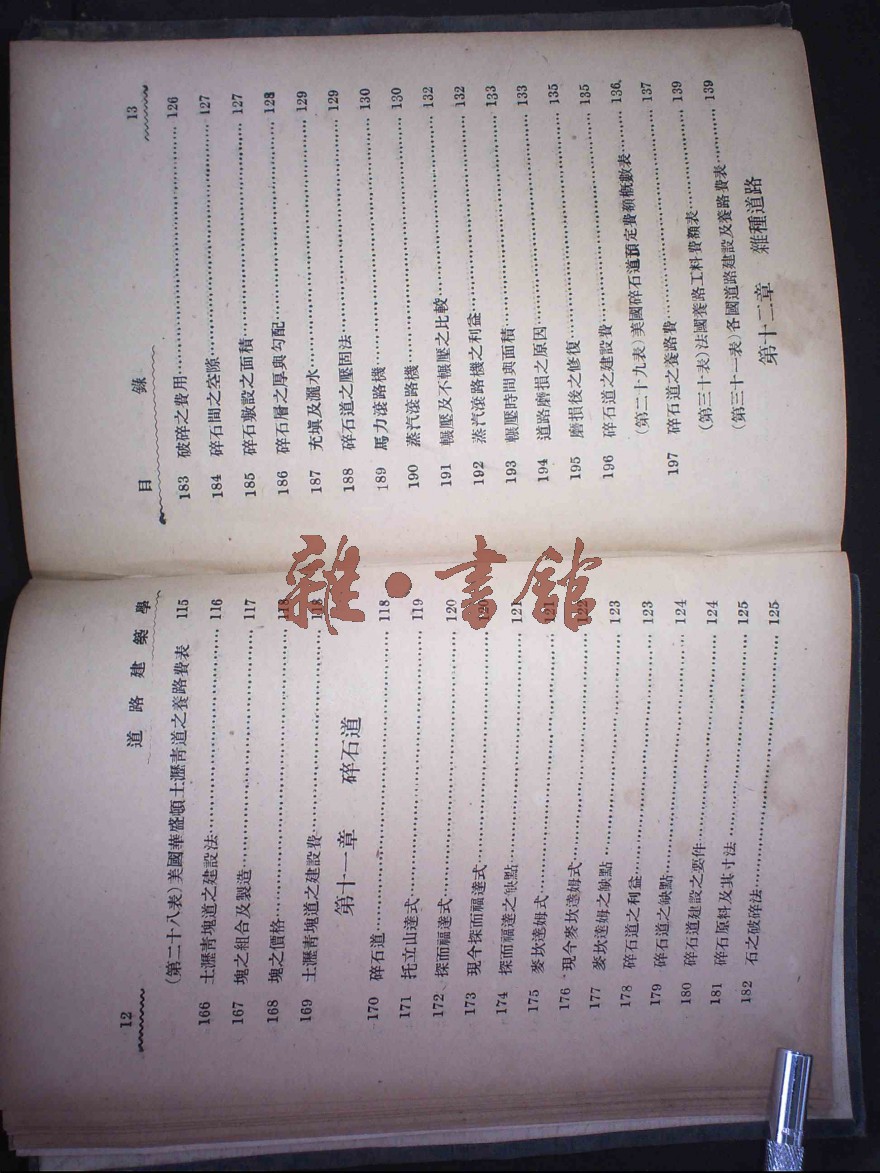 12 道路建築學
(第二十八表)美國華盛頓土瀝青道之養路費表 115
166 土瀝青塊道之建設法 116
167 塊之組合及製造 117
168 塊之價格 118
169 土瀝青塊道之建設費 118
第十一章 碎石道
170 碎石道 118
171 托立山達式 119
172 探而福達式 120
173 現今探而福達式 120
174 探而福達之缺點 121
175 麥坎達姆式 121
176 現今麥坎達姆式 122
177 麥坎達姆之缺點 123
178 碎石道之利益 123
179 碎石道之缺點 124
180 碎石道建設之要件 124
181 碎石原料及其寸法 125
182 石之破碎法 125
目錄 13
183 破碎之費用 126
184 碎石間之空隙 127
185 碎石敷設之面積 127
186 碎石層之厚與勾配 128
187 充塡及灑水 129
188 碎石道之壓固法 129
189 馬力滾路機 130
190 蒸汽滾路機 130
191 輾壓及不輾壓之比較 132
192 蒸汽滾路機之利益 132
193 輾壓時間與面積 133
194 道路磨損之原因 133
195 磨損後之修復 135
196 碎石道之建設費 135
(第二十九表)美國碎石道預定費額概數表 136
197 碎石道之養路費 137
(第三十表)法國養路工料費額表 139
(第三十一表)各國道路建設及養路費表 139
第十二章 雜種道路
雜·書館